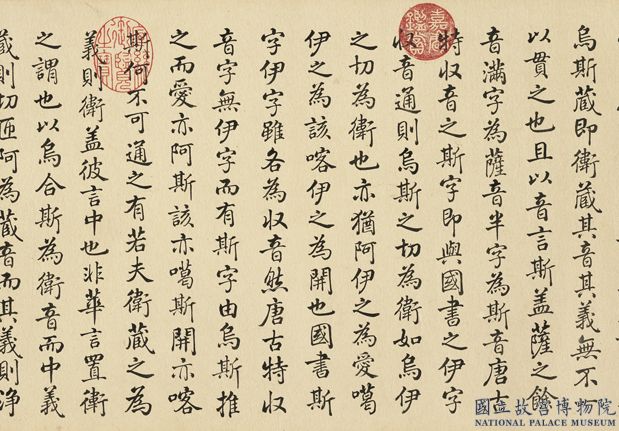 烏斯藏即衛藏其音其義無不
以貫之也且以音言斯盖薩之餘
音滿字為薩音半字為斯音唐古
特收音之斯字即與國書之伊字
收音通則烏斯之切為衛如烏伊
之切為衛也亦猶阿伊之為愛噶
伊之為該喀伊之為開也國書斯
字伊字雖各為收音然唐古特收
音字無伊字而有斯字由烏斯推
之而愛亦阿斯該亦噶斯開亦喀
斯何不可通之有若夫衛藏之為
義則衛盖彼言中也非華言置衛
之謂也以烏合斯為衛音而中義
藏則切匝阿為藏音而其義則淨
嘉慶鑑賞
國立故宮博物院
NATIONAL PALACE MUSEUM